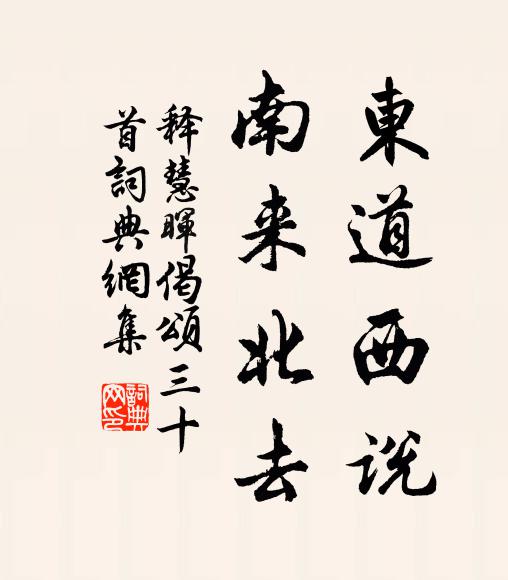 東道西说
南来北去
释慧暉偈頌三十
首詞典網集
詞典
网印